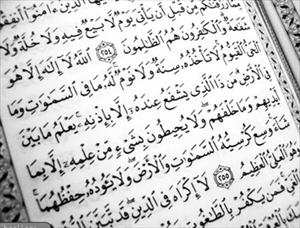 ـهَا الَّذِينَ ءَامَنُوا أَنفِقُوا
رَزَقْنَٰكُم مِّن قَبْلِ أَن يَأْتِيَ يَوْمٌ لَّا بَيْعٌ فِيهِ وَلَا خُلَّةٌ وَلَا
شَفَٰعَةٌ وَالْكَٰفِرُونَ هُمُ الظَّٰلِمُونَ ٢٥٤ اللَّهُ لَا إِلَٰهَ إِلَّا هُوَ
الْحَيُّ الْقَيُّومُ لَا تَأْخُذُهُ سِنَةٌ وَلَا نَوْمٌ لَّهُ مَا فِي السَّمَٰوَٰتِ وَمَا
فِي الْأَرْضِ مَن ذَا الَّذِي يَشْفَعُ عِندَهُ إِلَّا بِإِذْنِهِ يَعْلَمُ مَا بَيْنَ
أَيْدِيهِمْ وَمَا خَلْفَهُمْ وَلَا يُحِيطُونَ بِشَيْءٍ مِّنْ عِلْمِهِ إِلَّا بِمَا
شَاءَ وَسِعَ كُرْسِيُّهُ السَّمَٰوَٰتِ وَالْأَرْضَ وَلَا يَـُٔودُهُ حِفْظُهُمَا
وَهُوَ الْعَلِيُّ الْعَظِيمُ ٢٥٥ لَا إِكْرَاهَ فِي الدِّينِ قَد تَّبَيَّنَ
الْغَيِّ فَمَن يَكْفُرْ بِالطَّٰغُوتِ